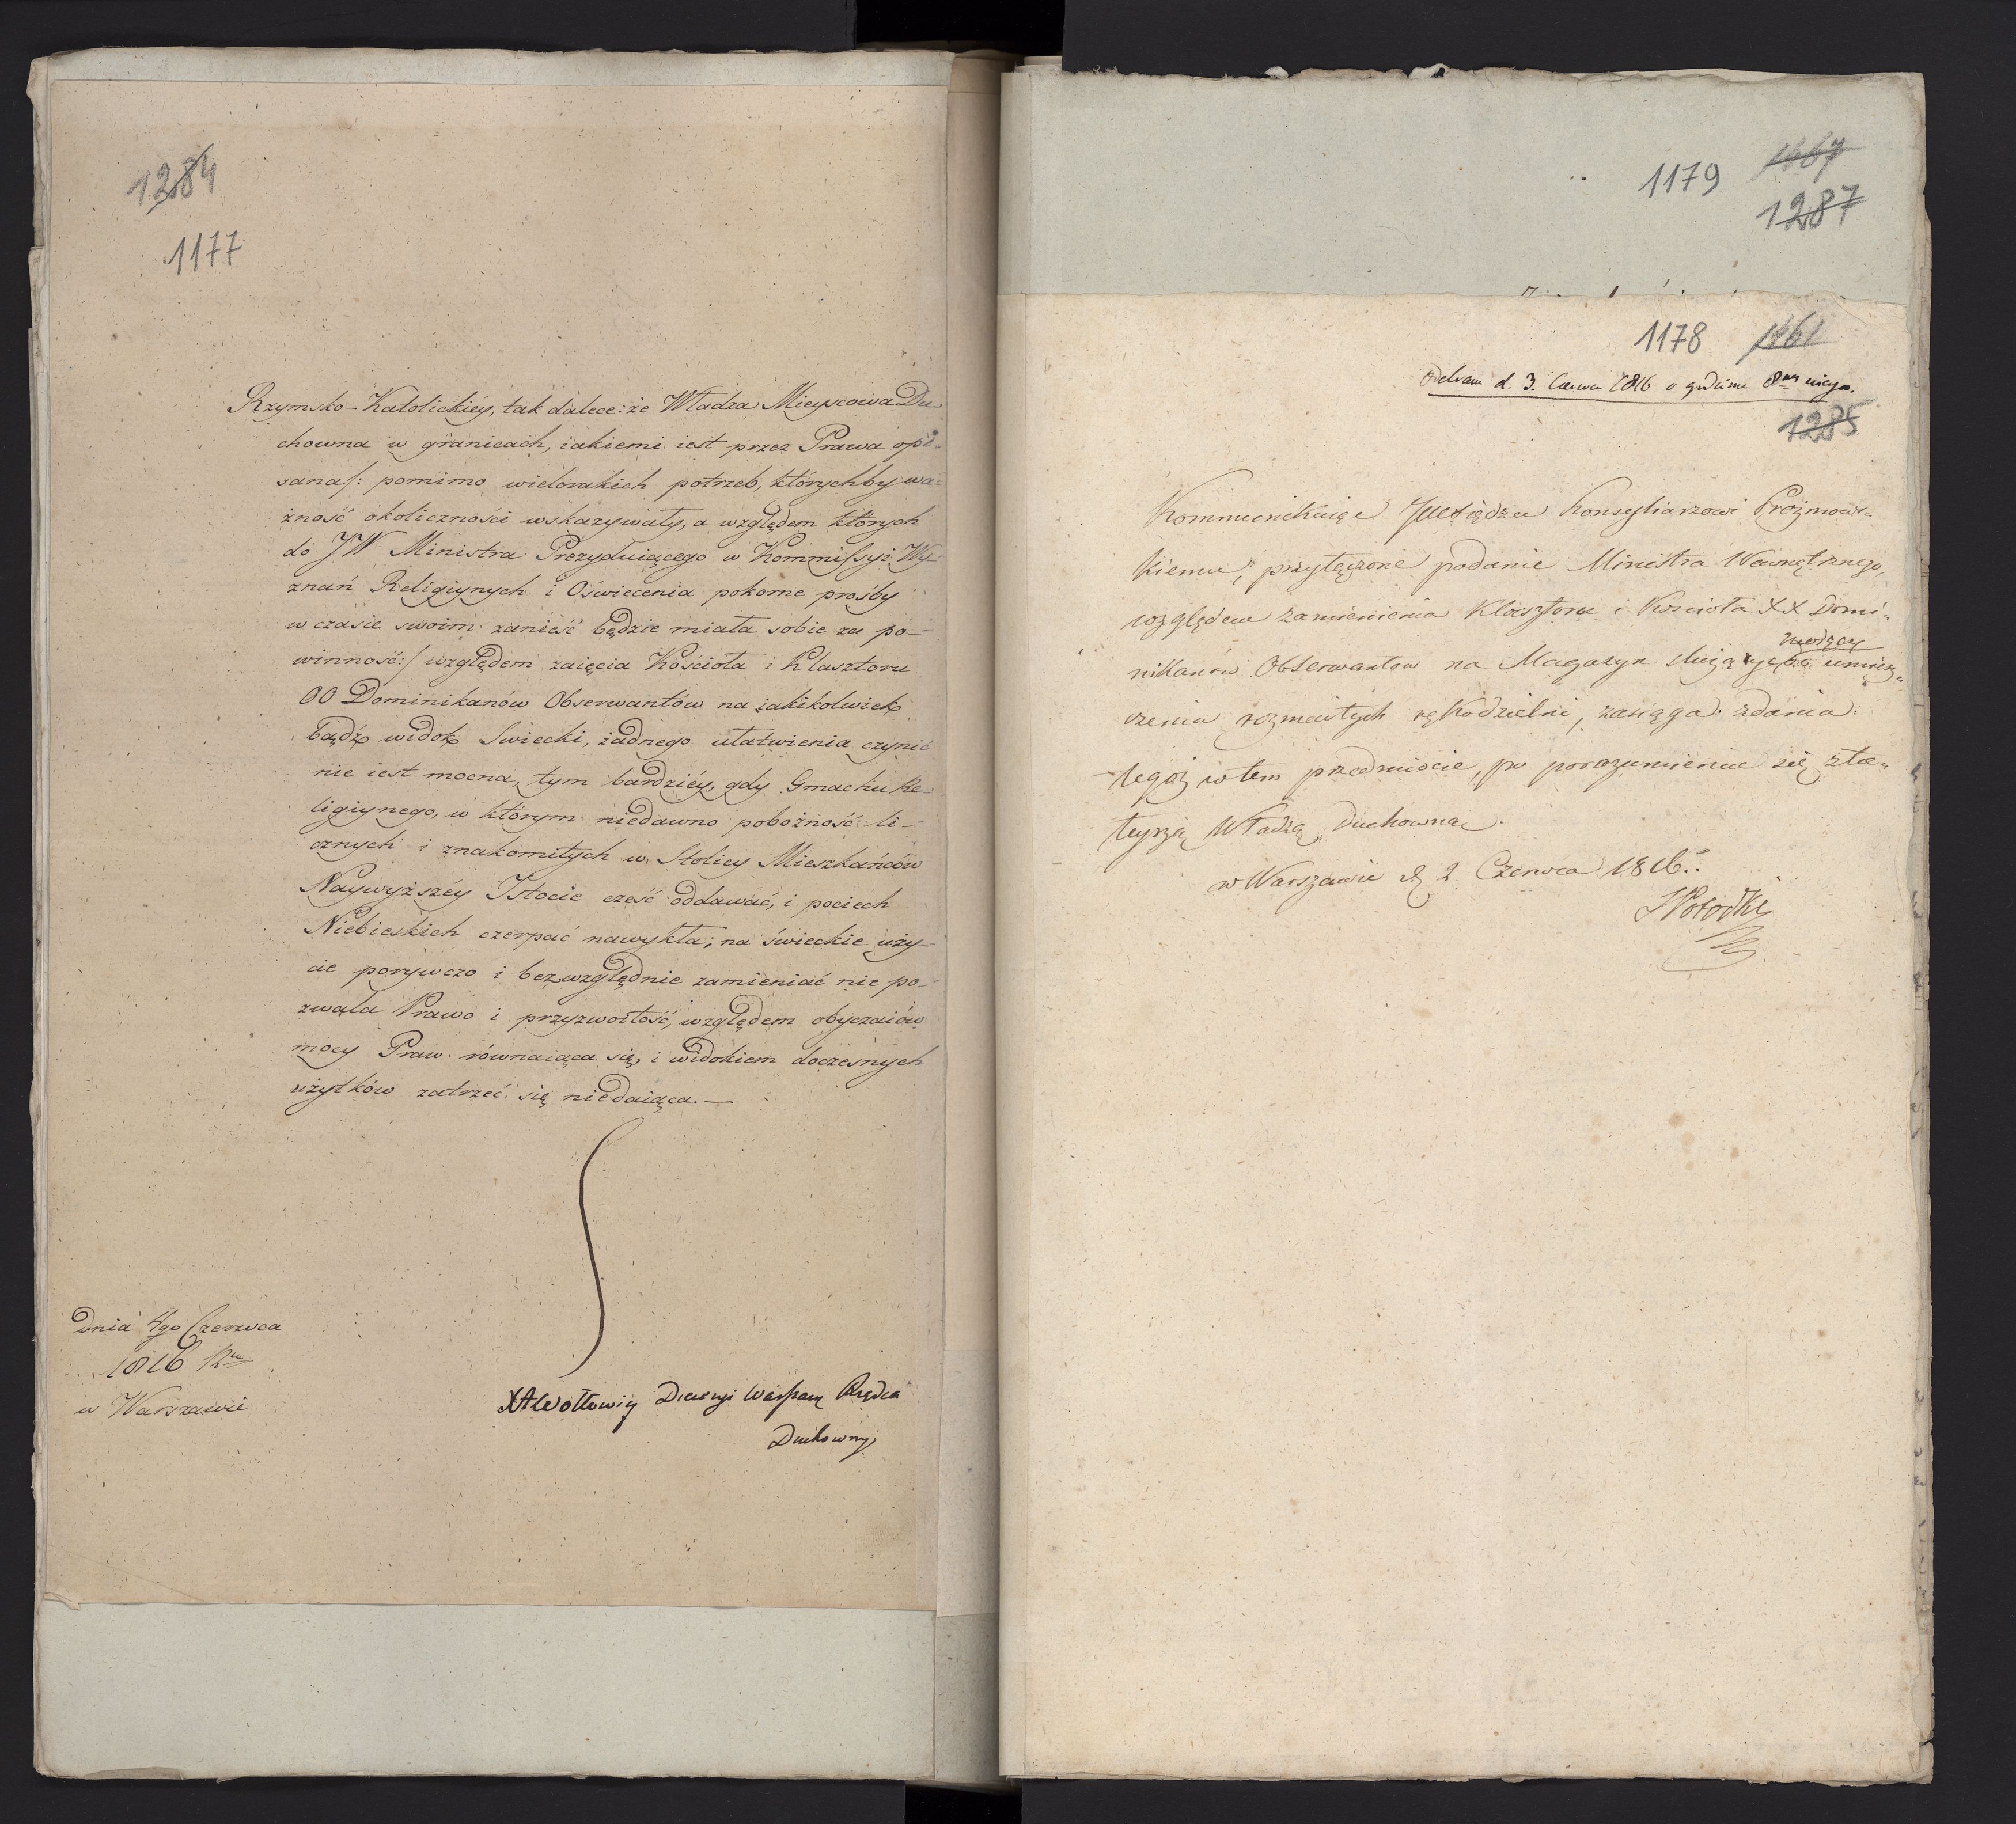 1284
1177
Rzymsko-Katolickiéy, tak dalece: że Władza Mieyscowa Du-
chowna w granicach, iakiemi iest przez Prawa opi-
sana/: pomimo wielorakich potrzeb, którychby wa-
żność okoliczności wskazywały, a względem których
do JW Ministra Prezyduiącego w Kommissyi Wy-
znań Religiynych i Oświecenia pokorne prośby
w czasie swoim zanieść będzie miała sobie za po-
winność:/ względem zaięcia Kościoła i Klasztoru
OO Dominikanów Obserwantów na iakikolwiek
bądź widok Swiecki, żadnego ułatwienia czynić
nie iest mocna, tym bardziéy, gdy Gmachu Re-
ligiynego, w którym niedawno pobożność li-
cznych i znakomitych w Stolicy Mieszkańców
Naywyższéy Istocie cześć oddawać, i pociech
Niebieskich czerpać nawykła; na świeckie uży-
cie porywczo i bezwzględnie zamieniać nie po-
zwala Prawo i przyzwoitość, względem obyczaiów
mocy Praw równaiąca się, i widokiem doczesnych
użytków zatrzeć się niedaiąca.—
dnia 4go Czerwca
1816 Ru
w Warszawie
XAWołłowicz Diecezyi Warszaw Rządca
Duchowny
1179
1167
1287
1178
1161
Odebrane d. 3. Czerwca 1816 o godzinie 8mej
1285
Kommunikuię Xiędzu Konsyliarzowi Prażmows-
kiemu, przyłączone podanie Ministra Wewnętrznego,
względem zamienienia Klasztoru i Kościoła XX Domi-
nikanów Obserwantów na Magazyn służący do umiesz-
mogący
czenia rozmaitych rękodzielni, zasięga zdania
tegoż w tem przedmiocie, po porozumieniu się z tu-
teyszą Władzą Duchowną.
w Warszawie d 2 Czerwca 1816.
SPotocki